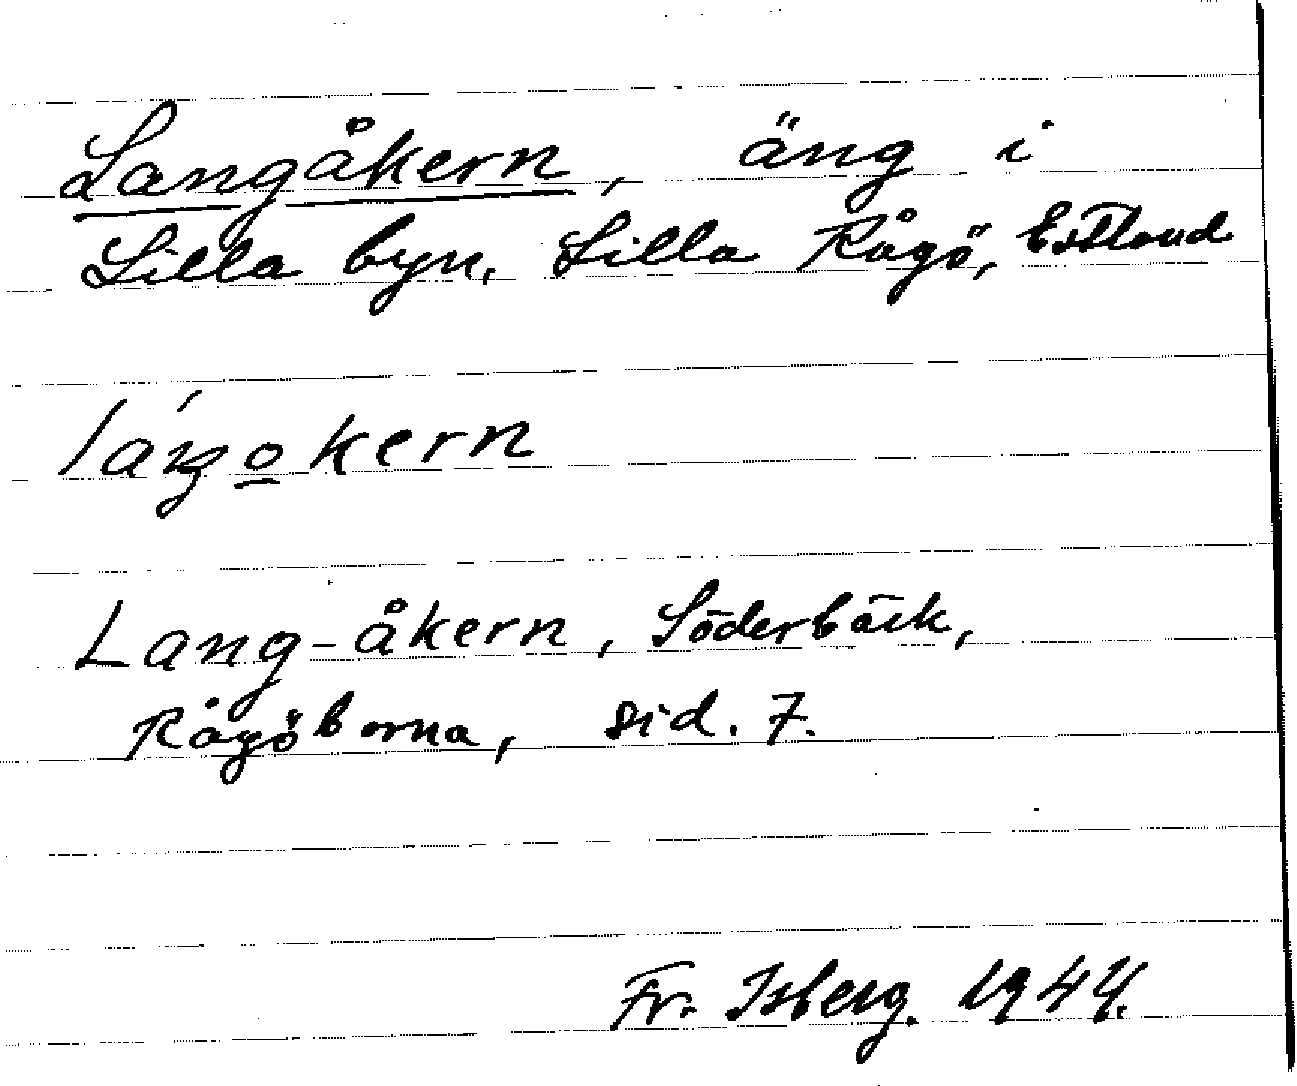 Langåkern, äng i
Lilla byn, Lilla Rågö, Estland
láŋo̲kern
Lang-åkern, Söderbäck,
Rågöborna, sid. 7.
Fr. Isberg. 1944.